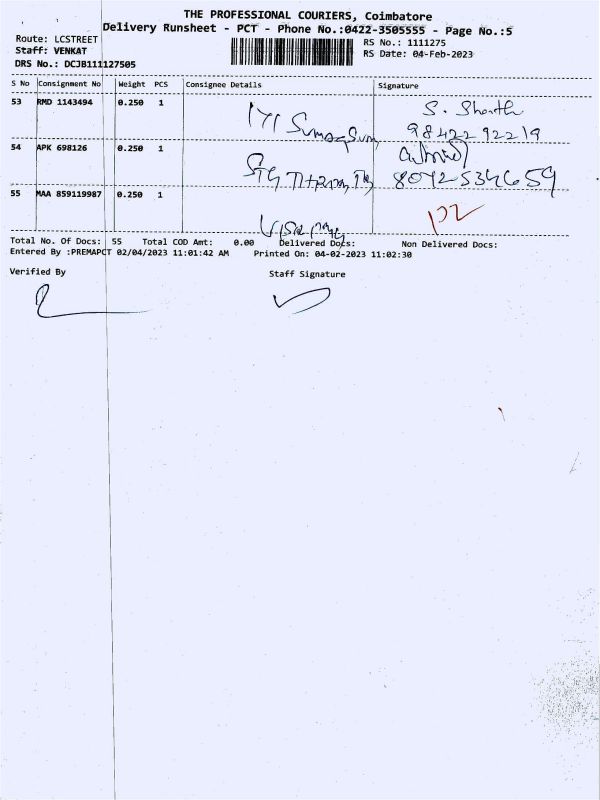 THE PROFESSIONAL COURIERS, Coimbatore
Delivery Runsheet - PCT - Phone No.:0422-3505555 - Page No.:5
Route: LCSTREET
RS No.: 1111275
Staff: VENKAT
RS Date: 04-Feb-2023
DRS No.: DCJB111127505
S No Consignment No Weight PCS Consignee Details Signature
53 RMD 1143494 0.250 1 S.
98422 92219
54 APK 698126 0.250 1
8072534659
55 MAA 859119987 0.250 1
Total No. Of Docs: 55 Total COD Amt: 0.00 Delivered Docs: Non Delivered Docs:
Entered By :PREMAPCT 02/04/2023 11:01:42 AM Printed On: 04-02-2023 11:02:30
Verified By Staff Signature